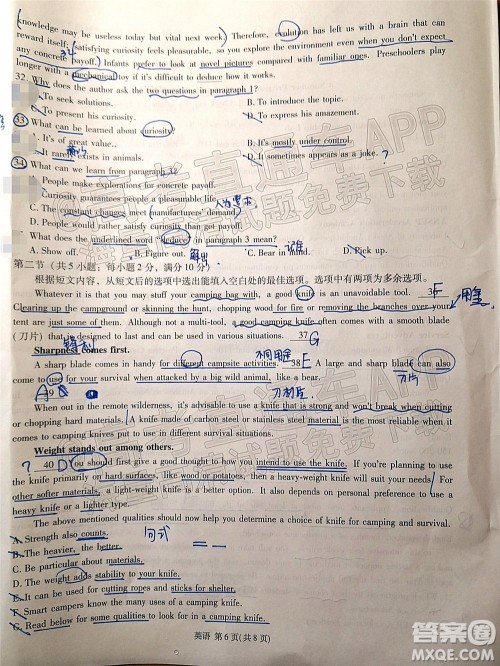 knowledge may be useless today but vital next week.) Therefore, evolution has left us with a brain that can
reward itself; satisfying curiosity feels pleasurable, so you explore the environment even when you don't expect
any concrete payoff. Infants prefer to look at novel pictures compared with familiar ones. Preschoolers play
longer with a mechanical toy if it's difficult to deduce how it works.
32. Why does the author ask the two questions in paragraph 1?
A. To seek solutions. B. To introduce the topic.
C. To present his curiosity. D. To express his amusement.
33. What can be learned about curiosity?
A. It's of great value. B. It's mostly under control.
C. It rarely exists in animals. D. It sometimes appears as a joke.
34. What can we learn from paragraph 3?
A. People make explorations for concrete payoff.
B. Curiosity guarantees us pleasure.
C. The constant changes meet manufacturers' demand.
D. People would rather satisfy curiosity than the needs.
35. What does the underlined word "deduce" in paragraph 3 mean?
A. Show off. B. Figure out. C. Bear in mind. D. Pick up.
第二节 (共 5 小题; 每小题 2 分, 满分 10 分)
根据短文内容, 从短文后的选项中选出能填入空白处的最佳选项。选项中有两项为多余选项。
Whatever it is that you stuff your camping bag with, a good knife is an unavoidable tool. 36
Clearing up the campground or skinning the hunt, chopping wood for fire or removing the branches over your
tent are just some of them. Although not a multi-tool, a good camping knife often comes with a smooth blade
(刀片) that is designed to last and can be used to cover various situations. 37 G
Sharpness comes first.
A sharp blade comes in handy for different campsite activities. 38 E A large and sharp blade can also
come to use for your survival when attacked by a big wild animal, like a bear.
39
When out in the remote wilderness, it's advisable to use a knife that is strong and won't break when cutting
or chopping hard materials. A knife made of carbon steel or stainless steel material is the most reliable when it
comes to camping knives put to use in different survival situations.
Weight stands out among others.
40 D You should first give a good thought to how you intend to use the knife. If you're planning to use
the knife primarily on hard surfaces, like wood or potatoes, then a heavy-weight knife will suit your needs. For
other softer materials, a light-weight knife is easy to use. It also depends on personal preference to use a
heavy knife or a lighter type.
The above mentioned qualities should now help you determine a choice of knife for camping and survival.
A. Strength also counts.
B. The heavier, the better.
C. Be particular about materials.
D. The weight adds stability to your knife.
E. It can be used for cutting ropes and sticks for shelter.
F. Smart campers know the many uses of a camping knife.
G. Read below for some qualities to look for in a camping knife.
英语 第 6 页(共 8 页)
答案圈
MXQE.COM